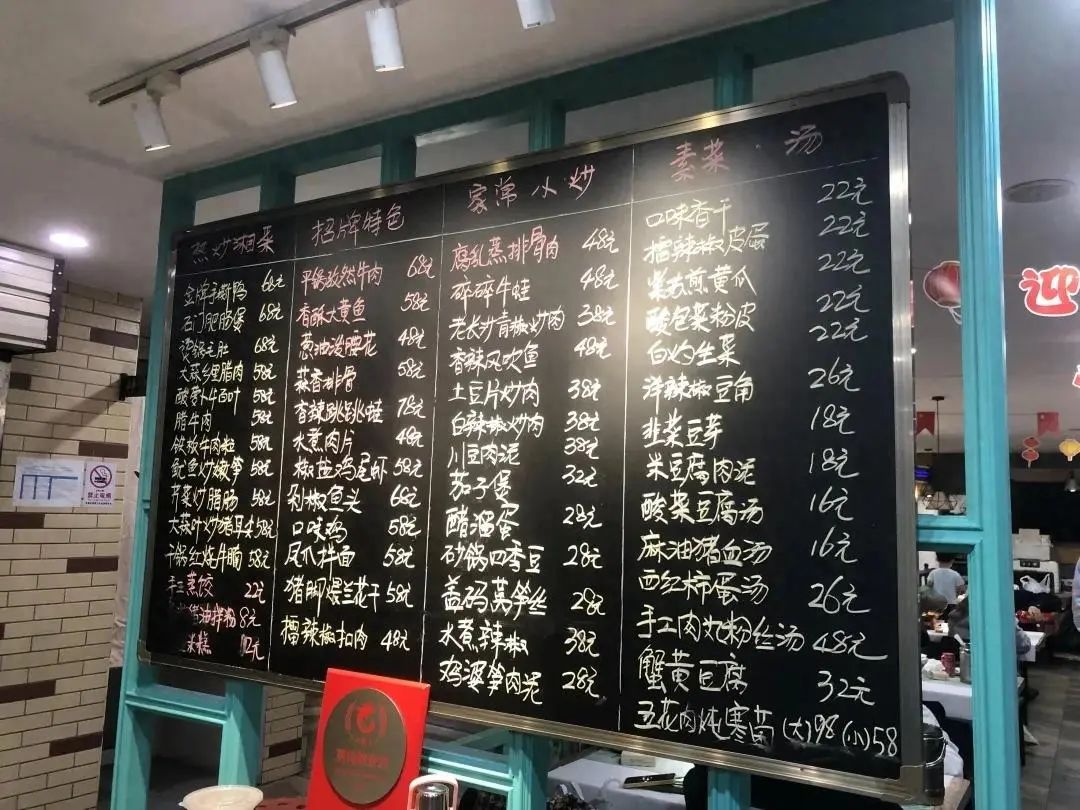 热炒湘菜
金牌手撕鸭 68元
石门肥肠煲 68元
毛肚 68元
大蒜乡里腊肉 58元
酸萝卜牛百叶 58元
腊牛肉 58元
铁板牛肉粒 58元
鱿鱼炒嫩笋 58元
芹菜炒腊肠 58元
大蒜叶炒猪耳尖 58元
干锅红烧牛腩 58元
手工蒸饺 22元
猪油拌粉 8元
米糕 12元
招牌特色
平锅孜然牛肉 68元
香酥大黄鱼 58元
葱油泼腰花 48元
蒜香排骨 58元
香辣跳跳蛙 78元
水煮肉片 48元
椒盐鸡尾虾 58元
剁椒鱼头 68元
口味鸡 58元
凤爪拌面 58元
猪脚爆兰花干 58元
擂辣椒扣肉 48元
家常小炒
腐乳蒸排骨肉 48元
砰砰牛蛙 48元
老长沙青椒炒肉 38元
香辣风吹鱼 48元
土豆片炒肉 38元
白辣椒炒肉 38元
川豆肉泥 38元
茄子煲 32元
醋溜蛋 28元
砂锅四季豆 28元
盖码莴笋丝 28元
水煮辣椒 38元
鸡婆笋肉泥 28元
素菜 汤
口味香干 22元
擂辣椒皮蛋 22元
紫苏煎黄瓜 22元
酸包菜粉皮 22元
白灼生菜 22元
洋辣椒豆角 26元
韭菜豆芽 18元
米豆腐肉泥 18元
酸菜豆腐汤 16元
麻油猪血汤 16元
西红柿蛋汤 26元
手工肉丸粉丝汤 48元
蟹黄豆腐 32元
五花肉炖寒菌 (大)98 (小)58
迎
禁止吸烟